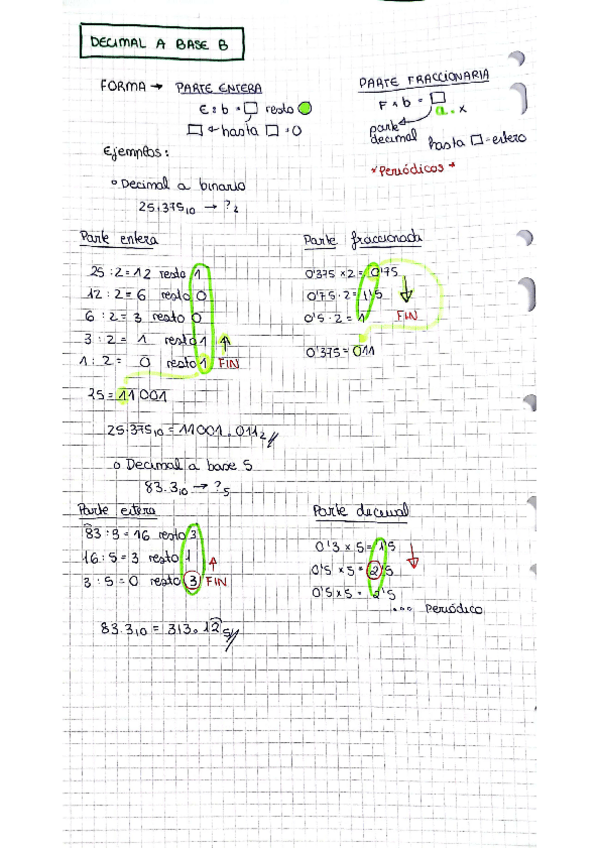 DECIMAL A BASE B
FORMA → PARTE ENTERA
E : b = □ resto
□ ← hasta □ = 0
PARTE FRACCIONARIA
F × b = □
a. x
parte decimal
hasta □ = entero
* Periódicos *
Ejemplos:
o Decimal a binario
25.375₁₀ → ?₂
Parte entera
25 : 2 = 12 resto 1
12 : 2 = 6 resto 0
6 : 2 = 3 resto 0
3 : 2 = 1 resto 1 ↑
1 : 2 = 0 resto 1 FIN
25 = 11001
Parte fraccionada
0'375 × 2 = 0'75
0'75 · 2 = 1'5
0'5 · 2 = 1 FIN
0'375 = 011
25.375₁₀ = 11001.011₂//
o Decimal a base 5
83.3₁₀ → ?₅
Parte entera
83 : 5 = 16 resto 3
16 : 5 = 3 resto 1 ↑
3 : 5 = 0 resto 3 FIN
Parte decimal
0'3 × 5 = 1'5
0'5 × 5 = 2'5
0'5 × 5 = 2'5
... Periódico
83.3₁₀ = 313.12₅//